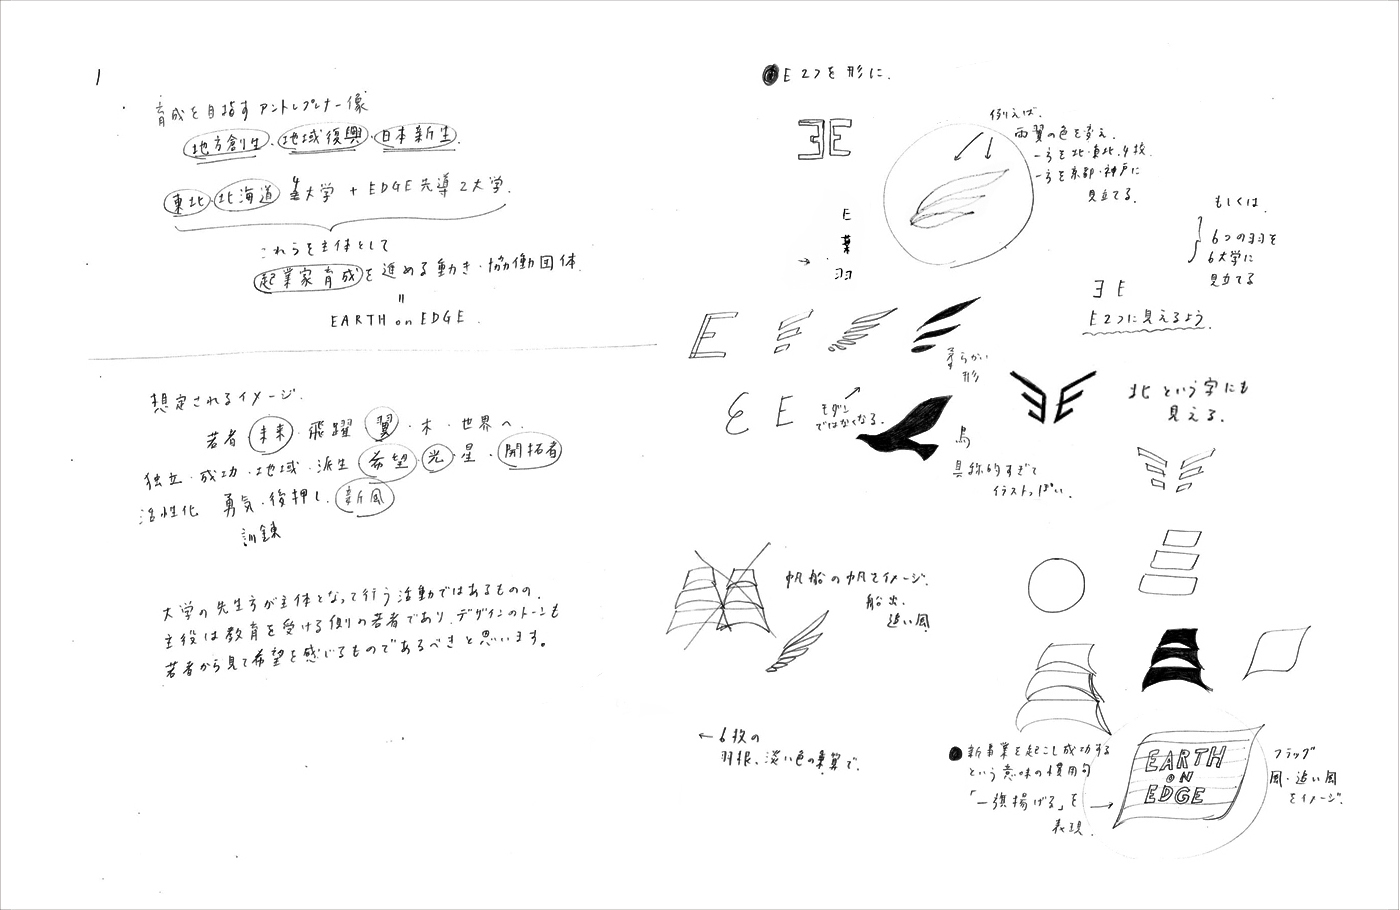 1
育成を目指すアントレプレナー像
地方創生・地域復興・日本新生
東北・北海道 4大学 + EDGE先導2大学.
これらを主体として
起業家育成を進める動き・協働団体
=
EARTH on EDGE.
想定されるイメージ.
若者 未来・飛躍 翼・木・世界へ.
独立・成功・地域・派生 希望・光・星・開拓者
活性化 勇気・後押し. 新風
訓練
大学の先生方が主体となって行う活動ではあるものの、
主役は教育を受ける側の若者であり、デザインのトーンも
若者から見て希望を感じるものであるべきと思います。
● E 2つを形に.
ヨE
例えば.
両翼の色を変え.
一方を北・東北.4校.
一方を京都・神戸に
見立てる.
もしくは.
6つの羽を
6大学に
見立てる
E
葉
羽
→
ヨ E
E2つに見えるよう.
E
柔らかい
形
E E
モダン
ではなくなる.
鳥
具体的すぎて
イラストっぽい.
北という字にも
見える.
帆船の帆をイメージ.
船出.
追い風
← 6枚の
羽根、淡い色の乗算で.
● 新事業を起こし成功する
という意味の慣用句
「一旗揚げる」を
表現.
→
EARTH
ON
EDGE
フラッグ
風・追い風
をイメージ.